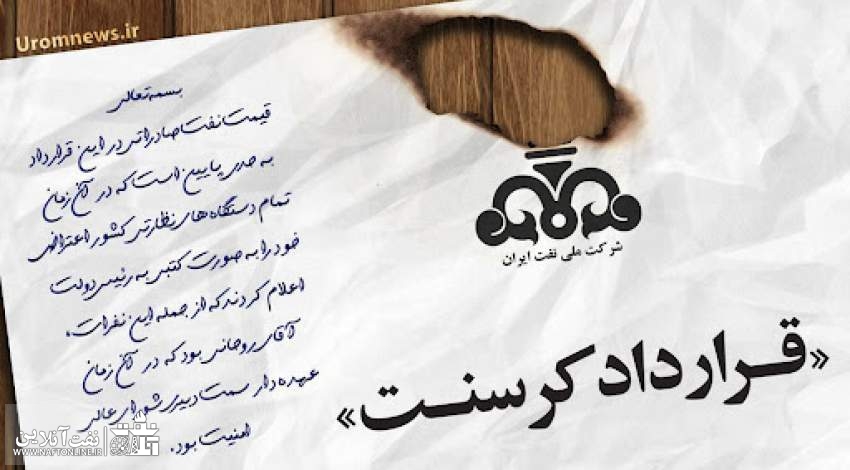 Uromnews.ir
بسمه تعالی
قیمت نفت صادراتی در این قرارداد
به حدی پایین است که در آن زمان
تمام دستگاه‌های نظارتی کشور اعتراض
خود را به صورت کتبی به رئیس دولت
اعلام کردند که از جمله این نفرات،
آقای روحانی بود که در آن زمان
عهده‌دار سمت دبیری شورای عالی
امنیت بود.
شرکت ملی نفت ایران
«قرارداد کرسنت»
نفت آنلاین
WWW.NAFTONLINE.IR